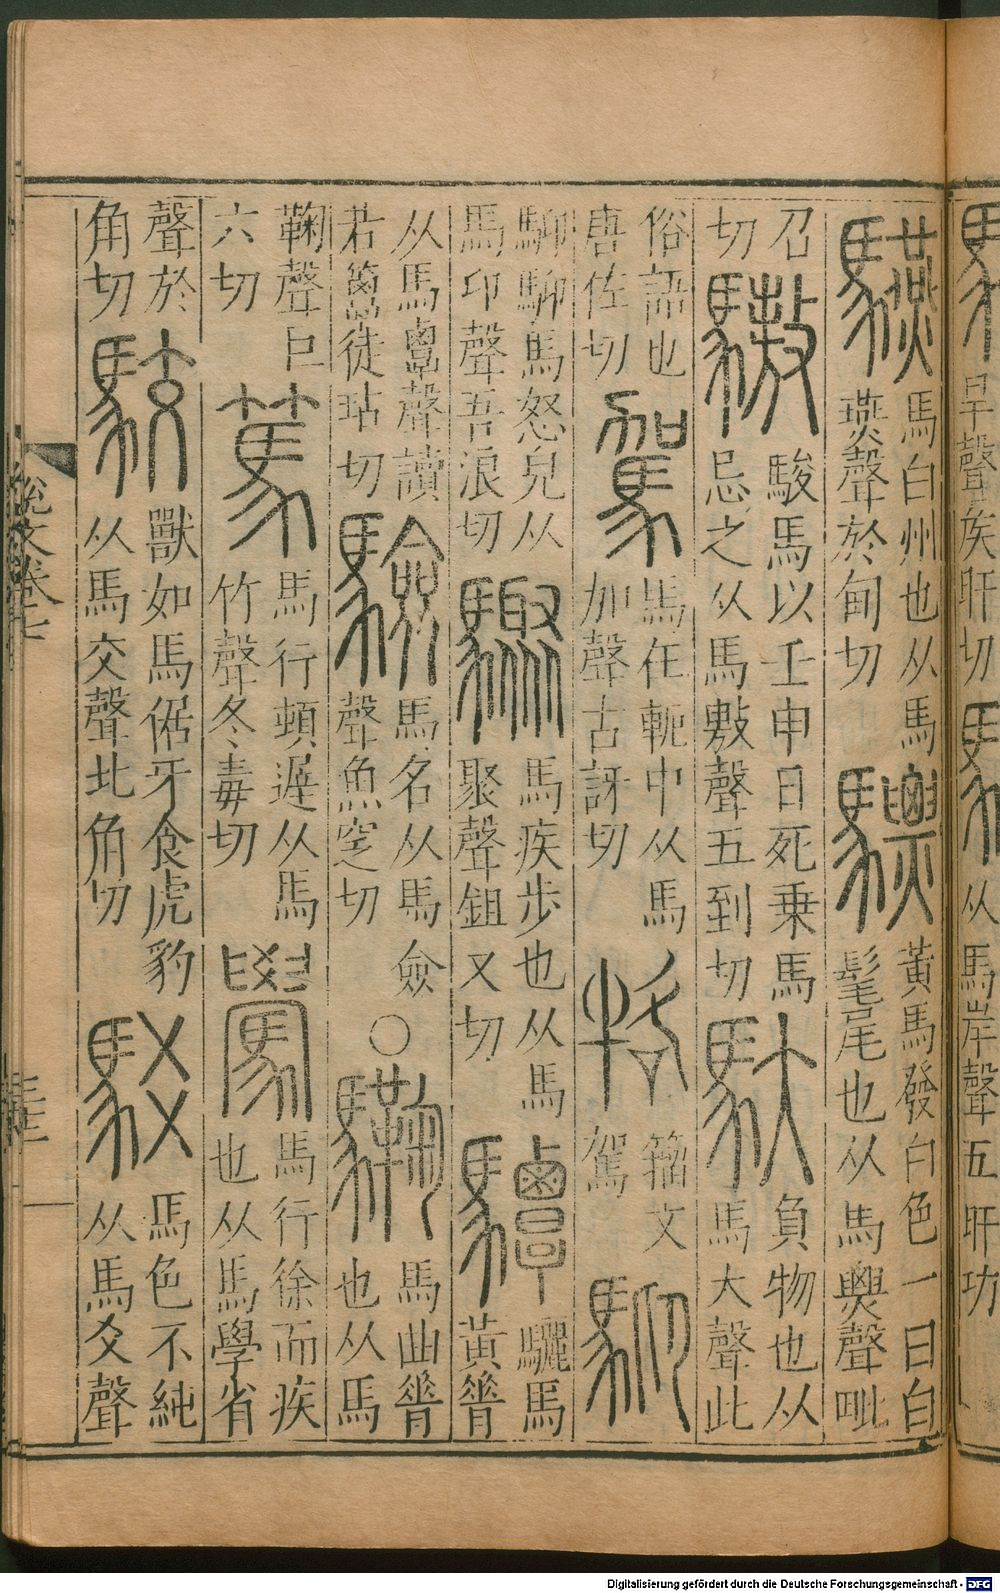 旱聲矦旰切
从馬岸聲五旰切
驠馬白州也从馬燕聲於甸切驃黃馬發白色一曰白髦尾也从馬㶾聲毗
召切驁駿馬以壬申日死乗馬忌之从馬敖聲五到切馱負物也从馬大聲此
俗語也唐佐切駕馬在軛中从馬加聲古訝切𤙑籀文駕䭹
䭹䭹馬怒皃从馬卬聲吾浪切驟馬疾步也从馬聚聲鉏又切驔驪馬黃脊
从馬覃聲讀若簟徒玷切驗馬名从馬僉聲魚窆切○驧馬曲脊也从馬
鞠聲巨六切篤馬行頓遲从馬竹聲冬毒切䮸馬行徐而疾也从馬學省
聲於角切駮獸如馬倨牙食虎豹从馬交聲北角切駁馬色不純从馬爻聲
說文卷七
Digitalisierung gefördert durch die Deutsche Forschungsgemeinschaft - DFG